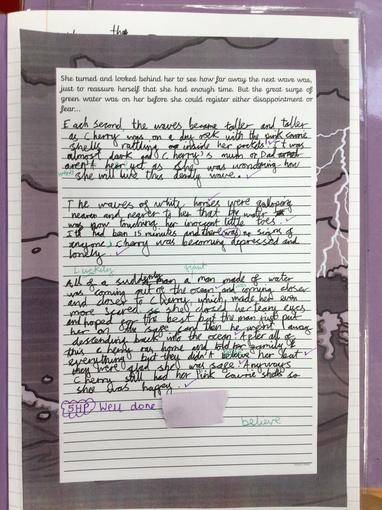 She turned and looked behind her to see how far away the next wave was,
just to reassure herself that she had enough time. But the great surge of
green water was on her before she could register either disappointment or
fear...
Each second the waves became taller and taller
as Cherry was on a dry rock with the pink cowrie
shells rattling inside her pockets. It was
almost dark and Cherry's mum or Dad
aren't here yet as she was wondering how
she will live this deadly wave.
The waves of white horses were galloping
nearer and nearer to her that the water
was now touching her innocent little toes.
It had been 15 minutes and there was no signs of
anyone. Cherry was becoming depressed and
lonely.
Luckily giant
All of a suddenly man a man made of water
was coming out of the ocean and coming closer
and closer to Cherry, which made her even
more scared so she closed her teary eyes
and hoped for the best but the man just put
her on the sage and then he went away
descending back into the ocean. After all of
this Cherry was home and told her family
everything but they didn't believe her but
they were glad she was sage. Anyways
Cherry still had her pink cowrie shells so
she was happy.
SHP Well done
believe